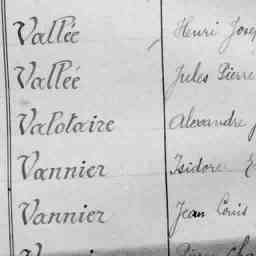 Vallée Henri Josep
Vallée Jules Pierre
Valotaire Alexandre J
Vannier Isidore
Vannier Jean Louis